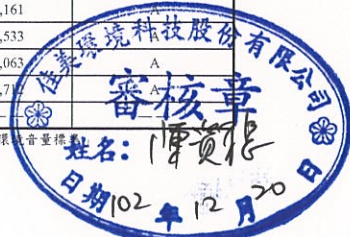 ,161 A
,533 A
,063 A
,712 A
環境音量標
佳美環境科技股份有限公司
審核章
姓名：陳
日期 102 年 12 月 20 日